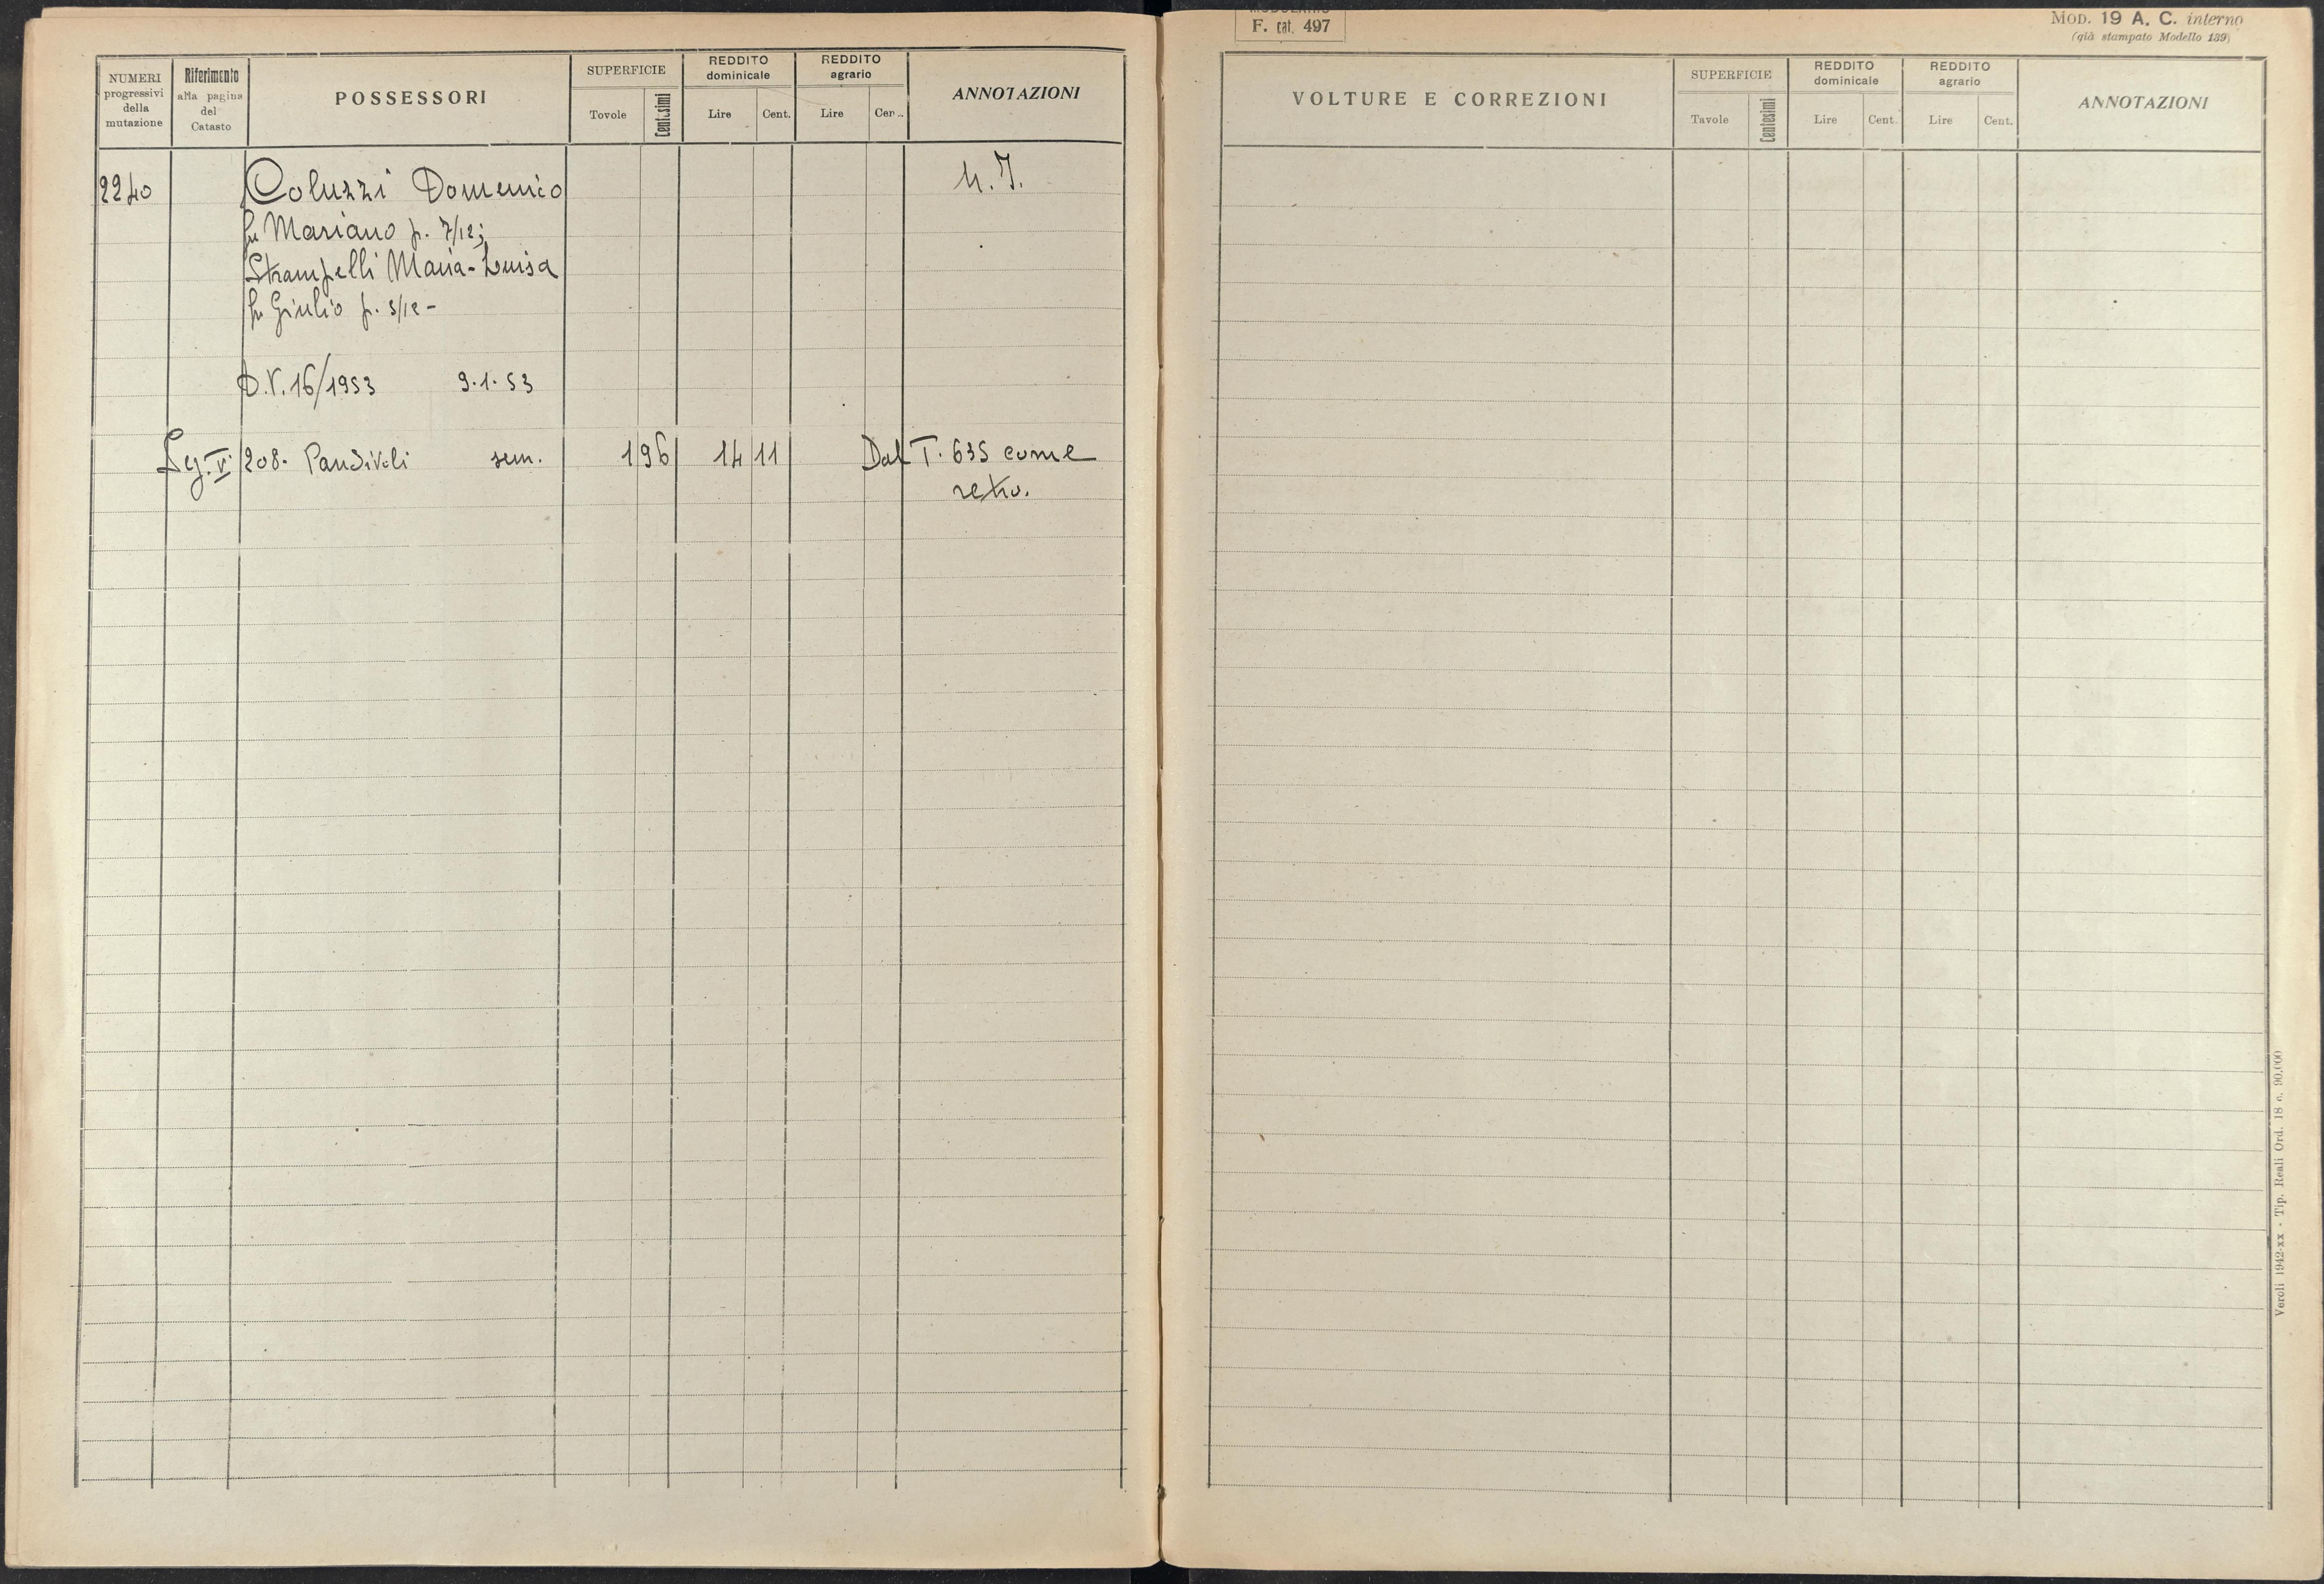 NUMERI progressivi della mutazione
Riferimento alla pagina del Catasto
POSSESSORI
SUPERFICIE
Tovole
Centesimi
REDDITO dominicale
Lire
Cent.
REDDITO agrario
Lire
ANNOTAZIONI
2240 Coluzzi Domenico
fu Mariano p. 7/12;
Strampelli Maria-Luisa
fu Giulio p. 5/12 -
D.V. 16/1953 9.1.53
Sez. V 208. Pandivoli sem. 1 96 14 11 Dal T. 635 come
retro.
F. cat. 497
MOD. 19 A. C. interno
(già stampato Modello 139)
VOLTURE E CORREZIONI
SUPERFICIE
Tavole
Centesimi
REDDITO dominicale
Lire
Cent.
REDDITO agrario
Lire
Cent.
ANNOTAZIONI
Veroli 1942-XX - Tip. Reali Ord. 18 c. 90.000